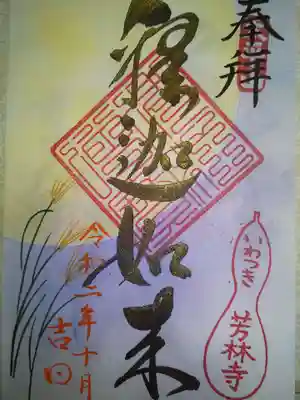 奉拝
釋迦如来
令和二年十月
吉日
いわつき
芳林寺